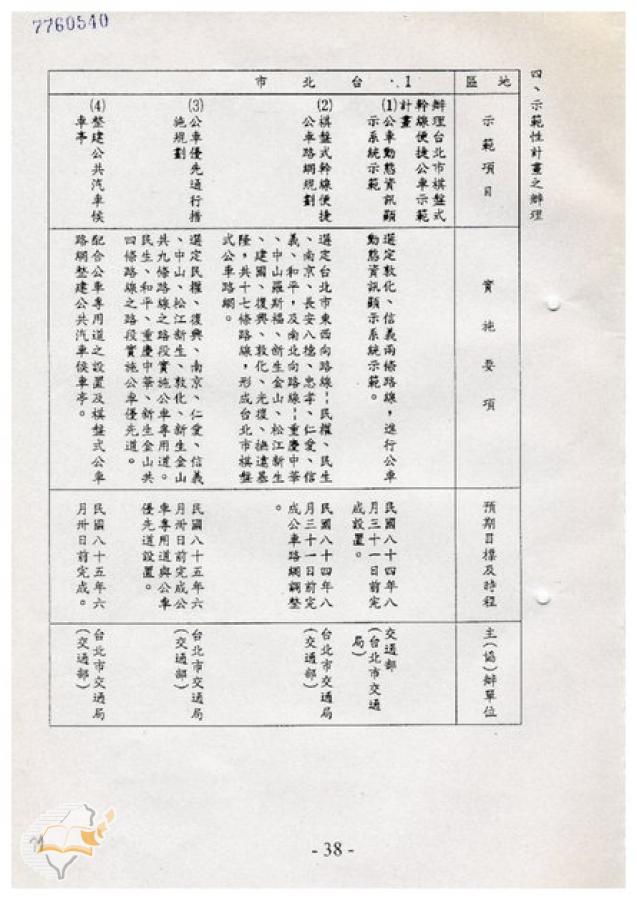 7760540
四、示範性計畫之辦理
地區
示範項目
實施要項
預期目標及時程
主(協)辦單位
1.台北市
辦理台北市棋盤式
幹線便捷公車示範
計畫
(1)公車動態資訊顯
示系統示範
選定敦化、信義兩條路線，進行公車
動態資訊顯示系統示範。
民國八十四年八
月三十一日前完
成設置。
交通部
(台北市交通
局)
(2)棋盤式幹線便捷
公車路網規劃
選定台北市東西向路線｜民權、民生
、南京、長安八德、忠孝、仁愛、信
義、和平，及南北向路線｜重慶中華
、中山羅斯福、新生金山、松江新生
、建國、復興、敦化、光復、撫遠基
隆，共十七條路線，形成台北市棋盤
式公車路網。
民國八十四年八
月三十一日前完
成公車路網調整
。
台北市交通局
(交通部)
(3)公車優先通行措
施規劃
選定民權、復興、南京、仁愛、信義
、中山、松江新生、敦化、新生金山
共九條路線之路段實施公車專用道。
民生、和平、重慶中華、新生金山共
四條路線之路段實施公車優先道。
民國八十五年六
月卅日前完成公
車專用道與公車
優先道設置。
台北市交通局
(交通部)
(4)整建公共汽車候
車亭
配合公車專用道之設置及棋盤式公車
路網整建公共汽車候車亭。
民國八十五年六
月卅日前完成。
台北市交通局
(交通部)
- 38 -